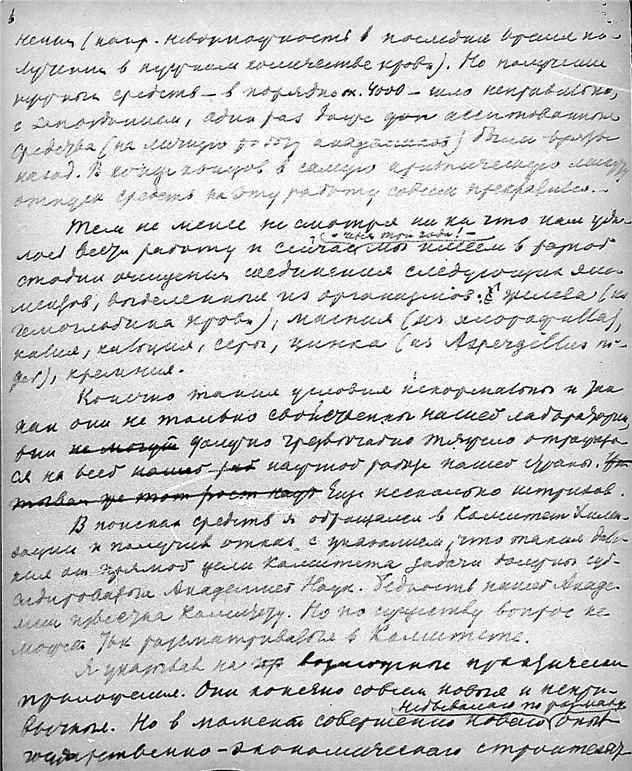 6
нения (напр. невозможность в последнее время по-
лучения в нужном количестве крови). Но получение
нужных средств – в порядке 4000 – шло неправильно,
с запозданием, один раз даже ассигнованные
средства (на личную работу академиков) были взяты
назад. В конце концов в самую критическую минуту
отпуск средств на эту работу совсем прекратился. –
Тем не менее не смотря ни на что нам уда-
лось вести работу и сейчас мы имеем в разной
стадии очищения соединения следующих эле-
ментов, выделенные из организмов: железа (из
гемоглобина крови), магния (из хлорофилла),
калия, кальция, серы, цинка (из Aspergillus ni-
ger), кремния.
Конечно такие условия ненормальны и так
как они не только свойственны нашей лаборатории,
они не могут должно чрезвычайно тяжело отражать
ся на всей научной работе нашей страны.
Еще несколько штрихов.
В поисках средств я обращался в Комитет Хими-
зации и получил отказ с указанием, что такие далё-
кие от прямой цели Комитета задачи должны суб-
сидироваться Академией Наук. Бедность нашей Акаде-
мии известна Комитету. Но по существу вопрос не
может так рассматриваться в Комитете.
Я указывал на возможные практические
приложения. Они конечно совсем новые и непри-
вычные. Но в момент совершенно нового
небывалого по размаху
опыта
государственно-экономического строительст